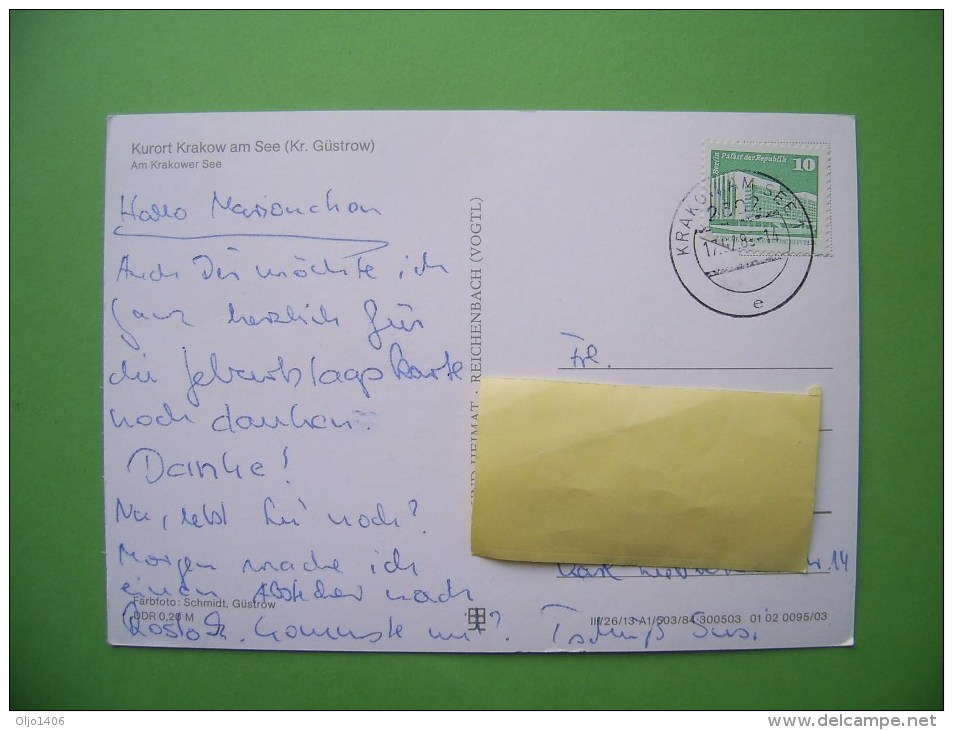 Kurort Krakow am See (Kr. Güstrow)
Am Krakower See
Hallo
Auch Dir möchte ich
ganz herzlich für
die Geburtstagskarte
noch danken.
Danke!
Na, lebst noch?
Morgen mache ich
einen Abstecher nach
Rostock. Kommste mit? Tschüß Susi
Farbfoto: Schmidt, Güstrow
DDR 0,20 M
UND HEIMAT · REICHENBACH (VOGTL)
Berlin Palast der Republik
10
KRAKOW AM SEE 1
2602
17. 85-14
e
Frl.
Karl 14
III/26/13 A1/503/84 300503 01 02 0095/03
Oljo1406
delcampe.net